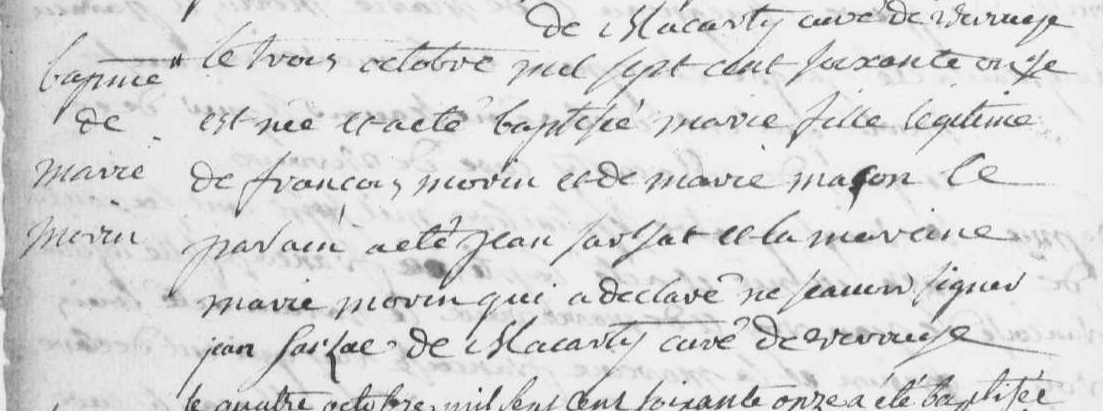 de Macarty curé de verruye
baptme le trois octobre mil sept cent soixante onze
de est née et a eté baptisée marie fille legitime
marie de françois morin et de marie maçon le
morin parain a eté jean sarzat et la mareine
marie morin qui a declaré ne scavoir signer
jean sarzac de Macarty curé de verruye
le quatre octobre mil sept cent soixante onze a été baptisée